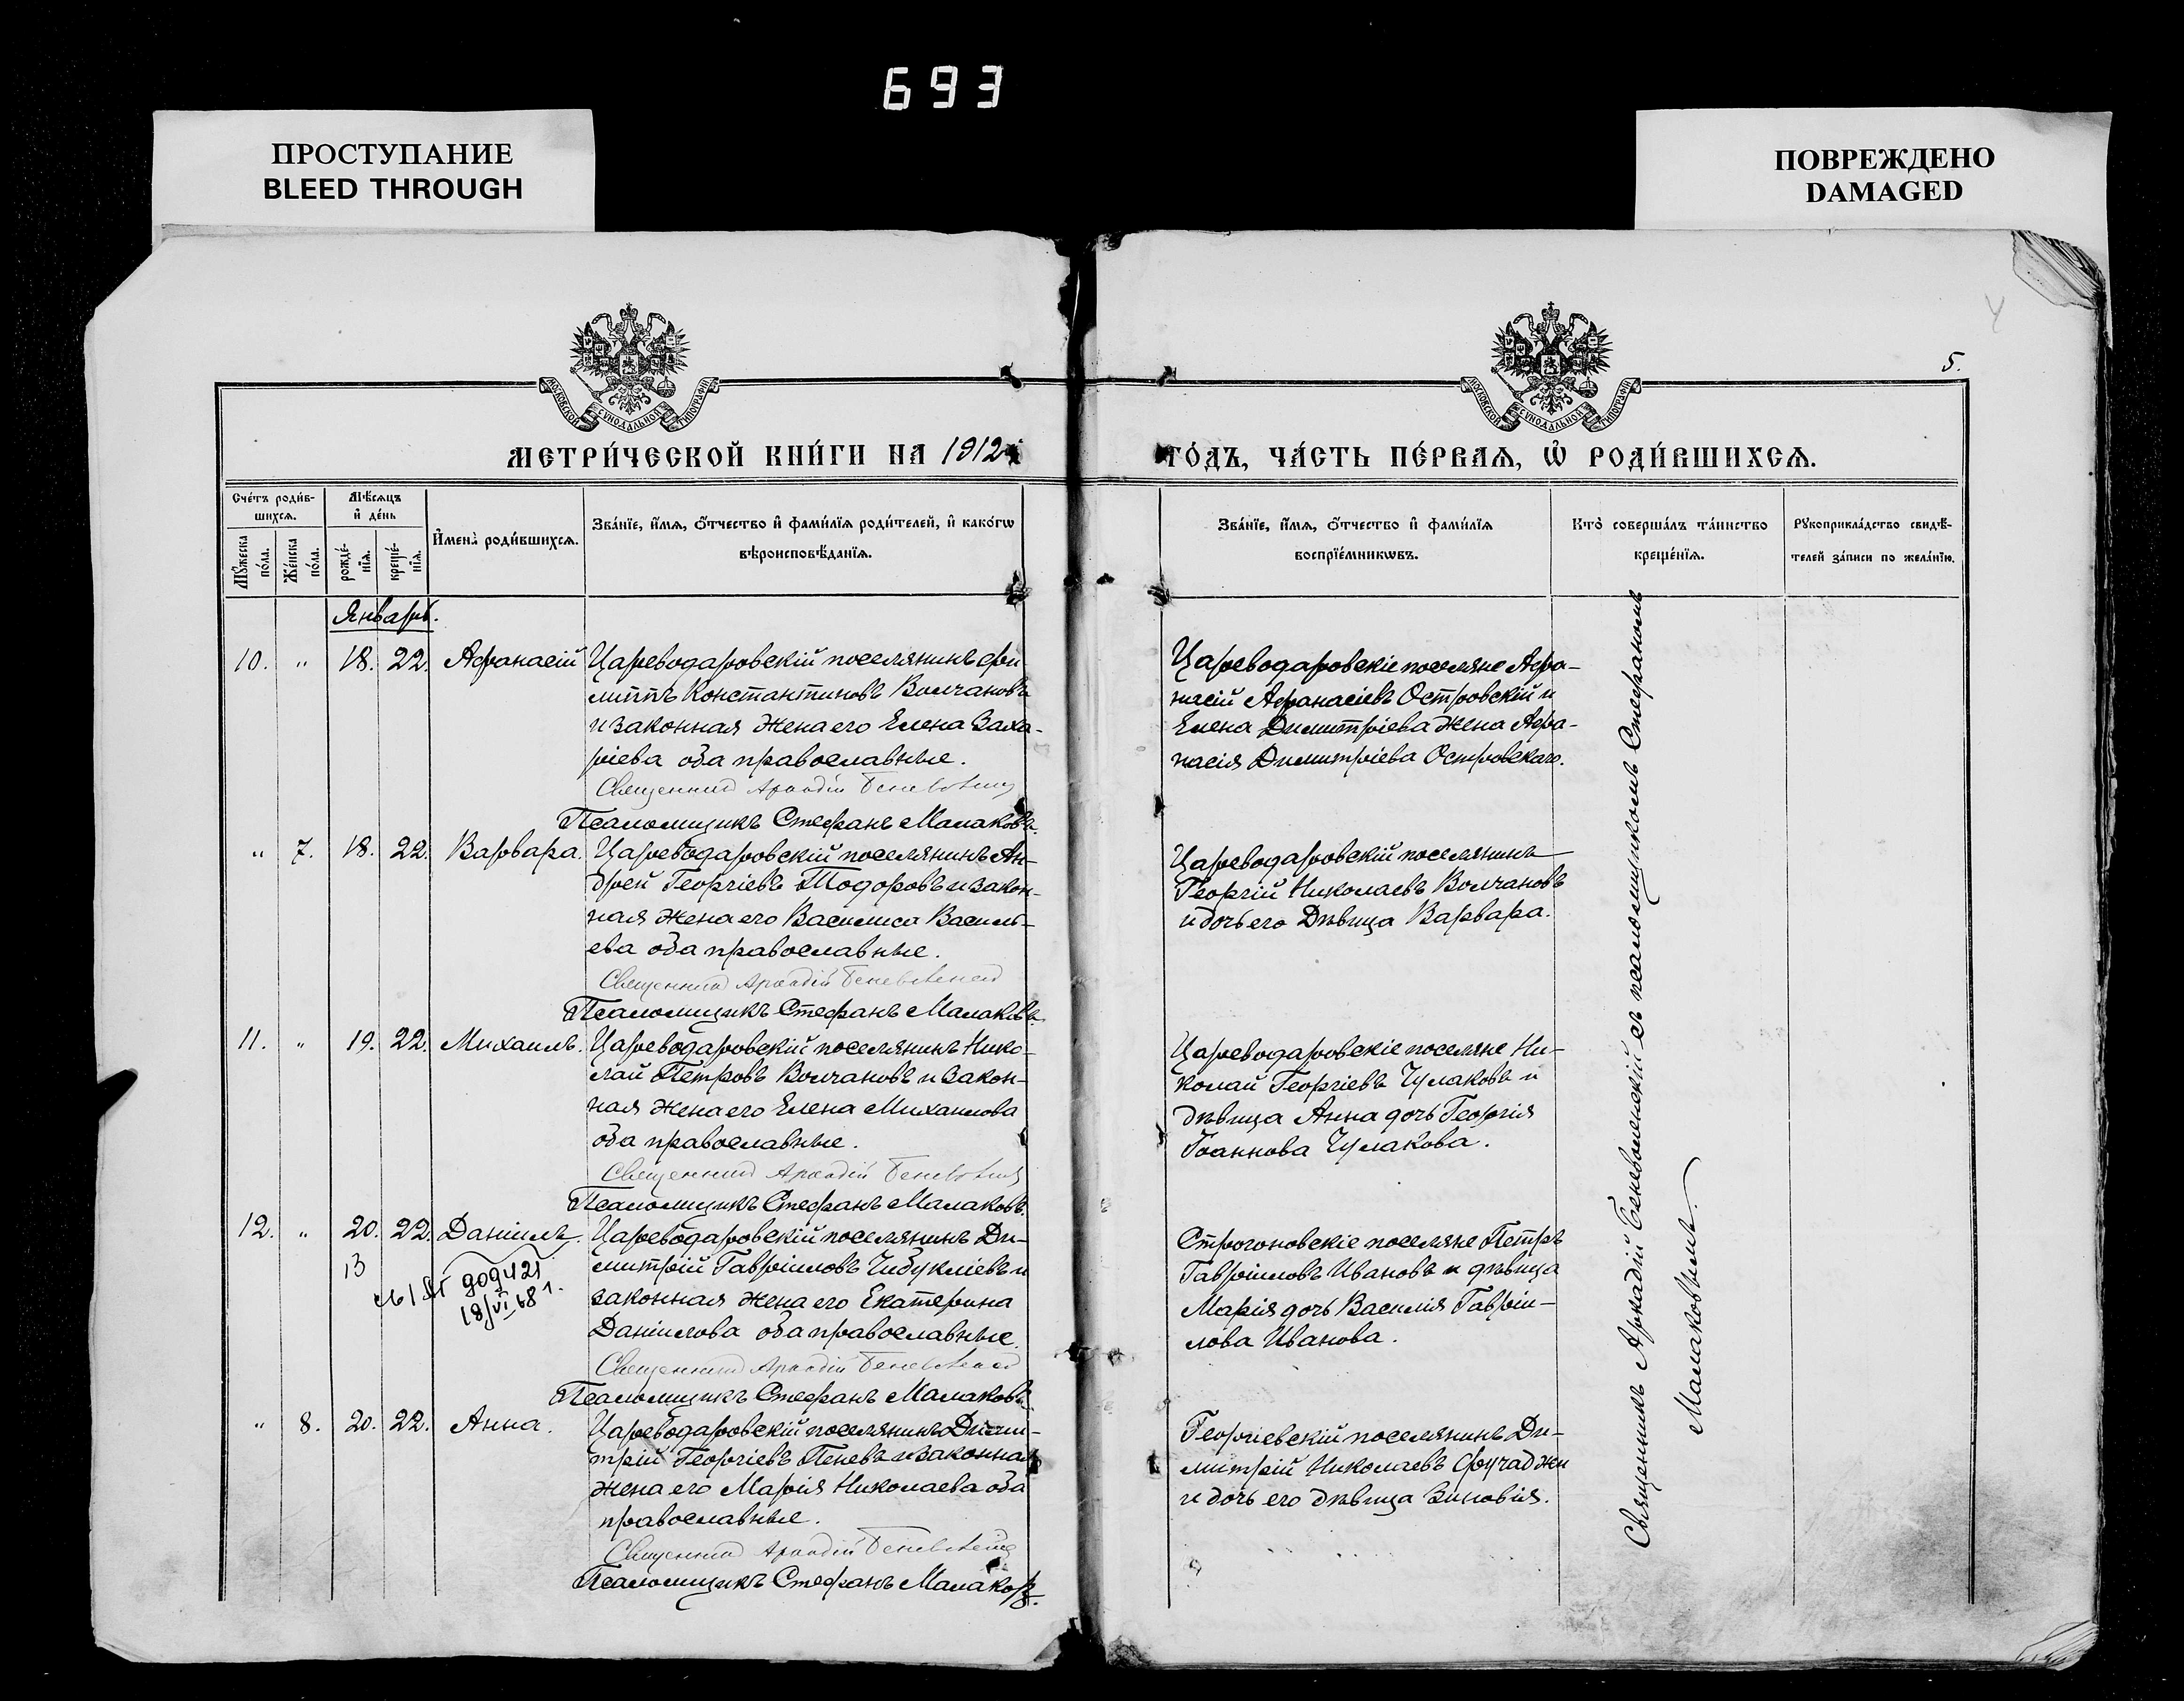 693
ПРОСТУПАНИЕ
BLEED THROUGH
ПОВРЕЖДЕНО
DAMAGED
5.
МОСКОВСКОЙ СУНОДАЛЬНОЙ ТИПОГРАФІИ
МОСКОВСКОЙ СУНОДАЛЬНОЙ ТИПОГРАФІИ
МЕТРИ́ЧЕСКОЙ КНИ́ГИ НА 1912
ГО́ДЪ, ЧА́СТЬ ПЕ́РВАѦ, Ѡ РОДИ́ВШИХСѦ.
Сче́тъ роди́в-
шихсѧ.
Мꙋ́жеска по́ла.
Же́нска по́ла.
Мѣ́сѧцъ
и҆ де́нь
рожде́-
нїѧ.
креще́-
нїѧ.
И҆мена̀ роди́вшихсѧ.
Зва́нїе, и҆́мѧ, ѻ҆́тчество и҆ фами́лїѧ роди́телей, и҆ како́гѡ
вѣроисповѣ́данїѧ.
Зва́нїе, и҆́мѧ, ѻ҆́тчество и҆ фами́лїѧ
воспрїе́мникѡвъ.
Кто̀ соверша́лъ та́инство
креще́нїѧ.
Рꙋкоприкла́дство свидѣ́-
телей за́писи по жела́нїю.
Январь.
10. " 18. 22. Афанасій Цареводаровскій поселянинъ Фи
липпъ Константиновъ Волчановъ
и законная жена его Елена Заха-
ріева оба православные.
Священникъ Аркадій Беневоленскій
Псаломщикъ Стефанъ Малаковъ.
Цареводаровскіе поселяне Афа-
насій Афанасіевъ Островскій и
Елена Димитріева жена Афа-
насія Димитріева Островскаго.
" 7. 18. 22. Варвара. Цареводаровскій поселянинъ Ан-
дрей Георгіевъ Тодоровъ и закон-
ная жена его Василиса Василь-
ева оба православные.
Священникъ Аркадій Беневоленскій
Псаломщикъ Стефанъ Малаковъ.
Цареводаровскій поселянинъ
Георгій Николаевъ Волчановъ
и дочь его Дѣвица Варвара.
11. " 19. 22. Михаилъ. Цареводаровскій поселянинъ Нико-
лай Петровъ Волчановъ и закон-
ная жена его Елена Михаилова
оба православные.
Священникъ Аркадій Беневоленскій
Псаломщикъ Стефанъ Малаковъ.
Цареводаровскіе поселяне Ни-
колай Георгіевъ Чулаковъ и
дѣвица Анна дочь Георгія
Іоаннова Чулакова.
12. " 20. 22. Даніилъ. Цареводаровскій поселянинъ Ди-
митрій Гавріиловъ Чибукліевъ и
законная жена его Екатерина
Даніилова оба православные.
Священникъ Аркадій Беневоленскій
Псаломщикъ Стефанъ Малаковъ.
13
909421
18/VI 68 г.
Строгоновскіе поселяне Петръ
Гавріиловъ Ивановъ и дѣвица
Марія дочь Василія Гавріи-
лова Иванова.
" 8. 20. 22. Анна. Цареводаровскій поселянинъ Дими-
трій Георгіевъ Пеневъ и законная
жена его Марія Николаева оба
православные.
Священникъ Аркадій Беневоленскій
Псаломщикъ Стефанъ Малаковъ.
Георгіевскій поселянинъ Ди-
митрій Николаевъ Фучаджи
и дочь его дѣвица Зиновія.
Священникъ Аркадій Беневоленскій съ псаломщикомъ Стефаномъ
Малаковымъ.